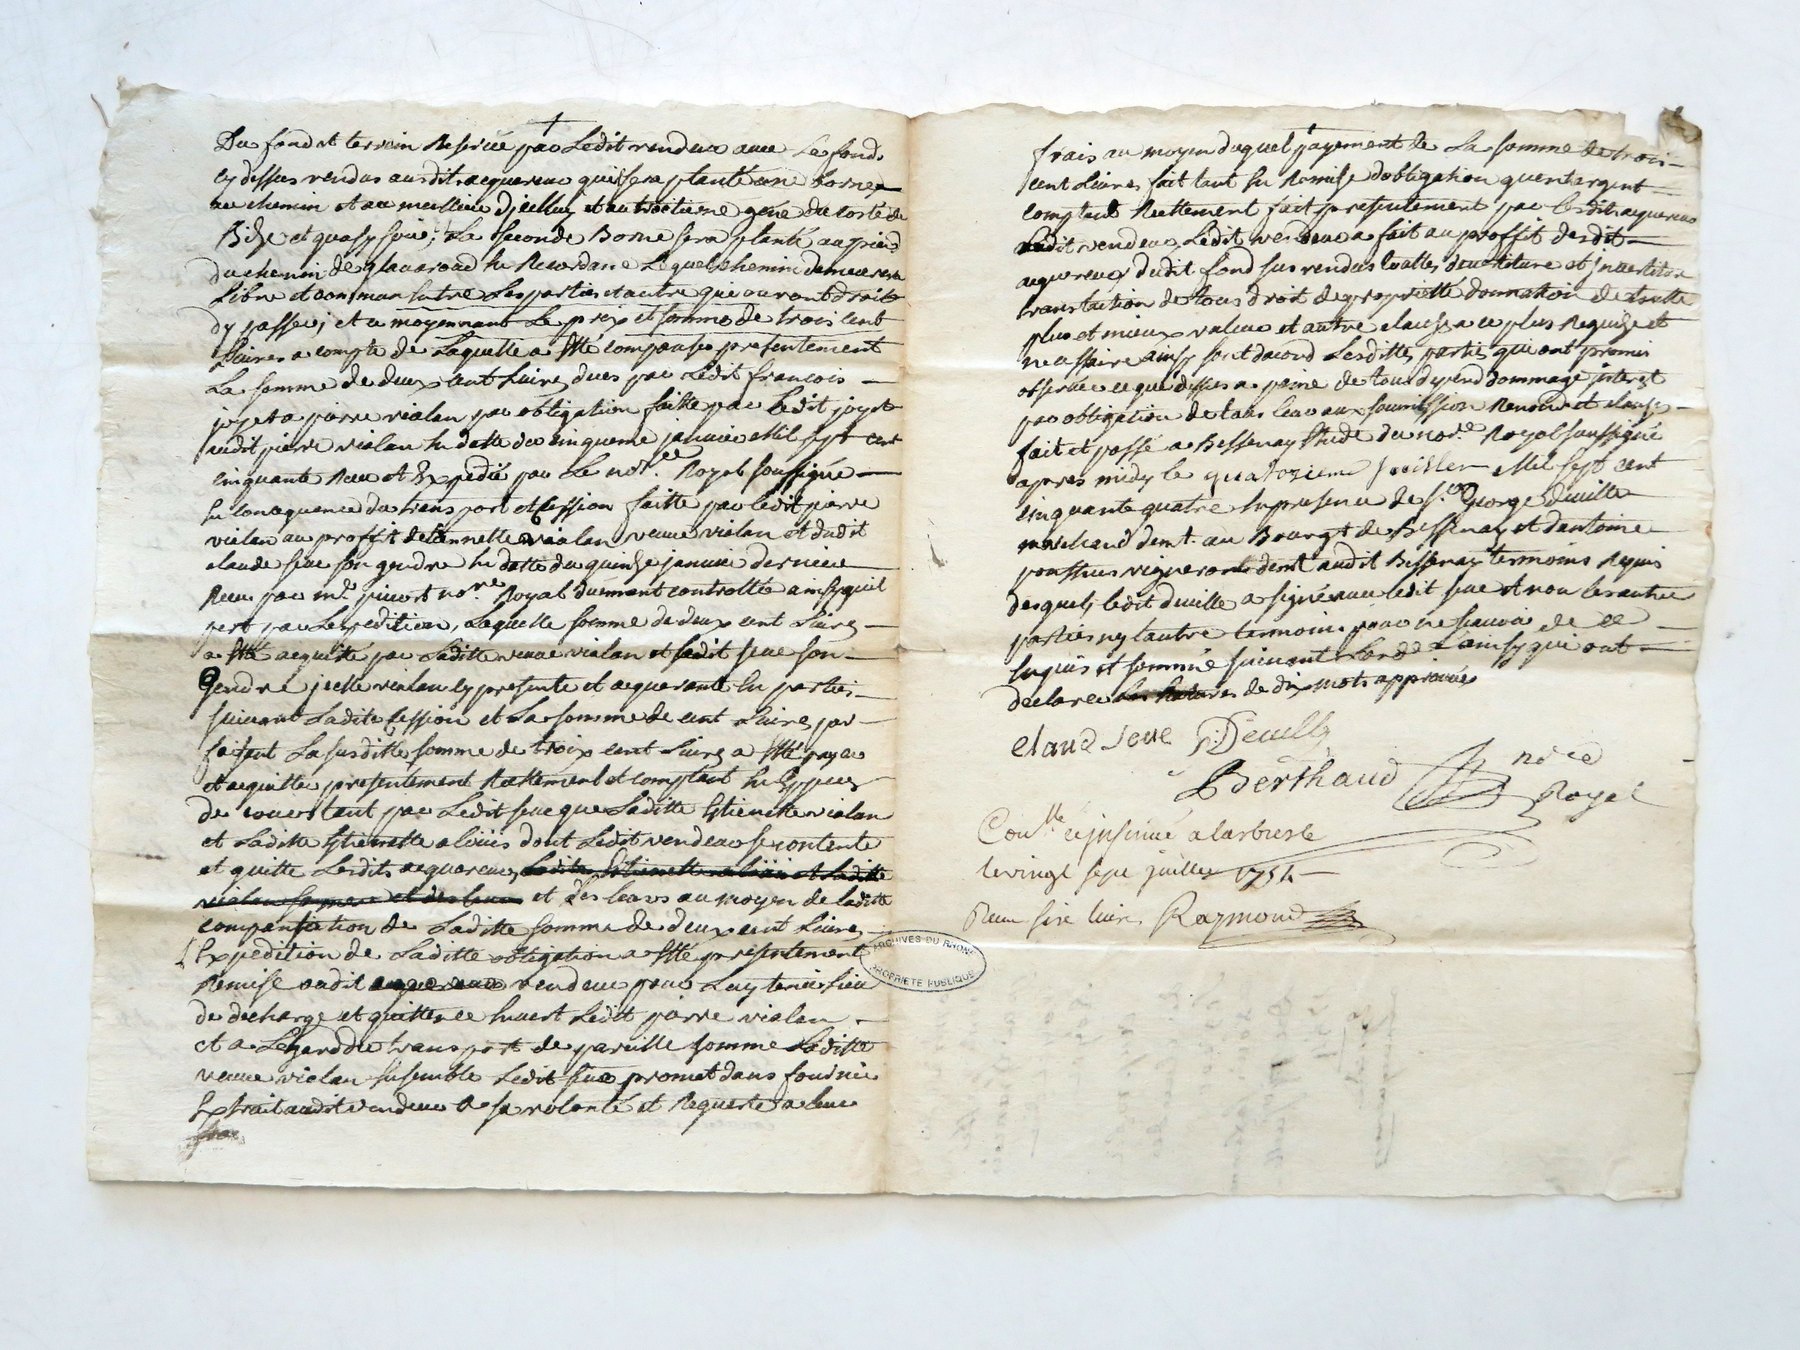 Du fond et terrein Reservé par Ledit vendeur avec Le fond
cy dessus vendus ausdits acquereur quil sera planté une borne
au chemin et au meilleur d'icelluy
Bize et quasy soir, La seconde Borne sera planté au pied
du chemin de Lequel chemin demeurera
Libre et commun entre Les parties et autre qui auront droit
dy passer; et ce moyennant Le prix et somme de trois cent
Livres a compte de Laquelle a Esté compensé presentement
La somme de deux cent Livres dues par Ledit francois
joyet a pierre violan par obligation faitte par Ledit joyet
audit pierre violan En datte du cinquieme janvier Mil sept cent
cinquante Receu et Expedié par Le not.re Royal soussigné
En consequence du transport et Cession faitte par ledit pierre
violan au proffit de Etiennette veuve violan et dudit
claude seve son gendre En datte du quinze janvier dernier
Receu par m.e not.re Royal duement controllée ainsy quil
pert par Lexpedition, Laquelle somme de deux cent Livres
a Esté acquitté par Laditte veuve violan et Ledit seve son
Gendre jcelle violan cy presente et acquerante En partie
suivant Ladite Cession et La somme de cent Livres par
faisant La susditte somme de troix cent Livres a Esté payée
et acquittée presentement Reellement et comptant En Especes
de cours tant par Ledit seve que Laditte Etiennette violan
et Laditte Etiennette dont Ledit vendeur se contente
et quitte Lesdits acquereurs Laditte Etiennette et Laditte
violan et des leurs et des leurs au moyen de laditte
compensation de Laditte somme de deux cent Livres
Expedition de Laditte obligation a Esté presentement
Remise audit acquereur vendeur pour Luy tenir lieu
de decharge et quittence Envert Ledit pierre violan
et a Legard du transport de pareille somme Laditte
veuve violan Ensemble Ledit seve promet dans fournir
Extrait audit vendeur a sa volonté et Requeste a leur
frais
frais au moyen duquel payement de La somme de trois
cent Livres fait tant En Remise d'obligation quen argent
comptant Reellement fait presentement par lesdits acquereur
audit vendeur Ledit vendeur a fait au proffit desdit
acquereur dudit fond sus vendus toutes devestiture et Investiture
translaction de tous droit de proprietté donnation de
plus et mieux valeur et autre clauses a ce plus Requise et
necessaire ainsy sont dacord Lesdittes parties qui ont promis
observer ce que dessus a peine de tous depend dommage interest
par obligation de tous leur aux soumission Renond et clauses
fait et passé a Bessenay Etude du not.re Royal soussigné
apres midy le quatorzieme Juillet Mil sept cent
cinquante quatre En presence de s.r George deville
marchand dem.t au Bourgt de Bessenay et dantoine
vigneron dem.t audit Bessenay temoins Requis
desquels ledit deville a signé avec ledit seve et non les autres
parties ny lautre temoin pour ne scavoir de ce
Enquis et sommé suivant Lord.ce ainsy qui ont
declaré de dix mots approuvées
claud seve G: Deville
Berthaud no.re
Royal
Con.lle & insinué a larbresle
le vingt sept juillet 1754
Receu livres Raymond
ARCHIVES DU RHONE
PROPRIETE PUBLIQUE